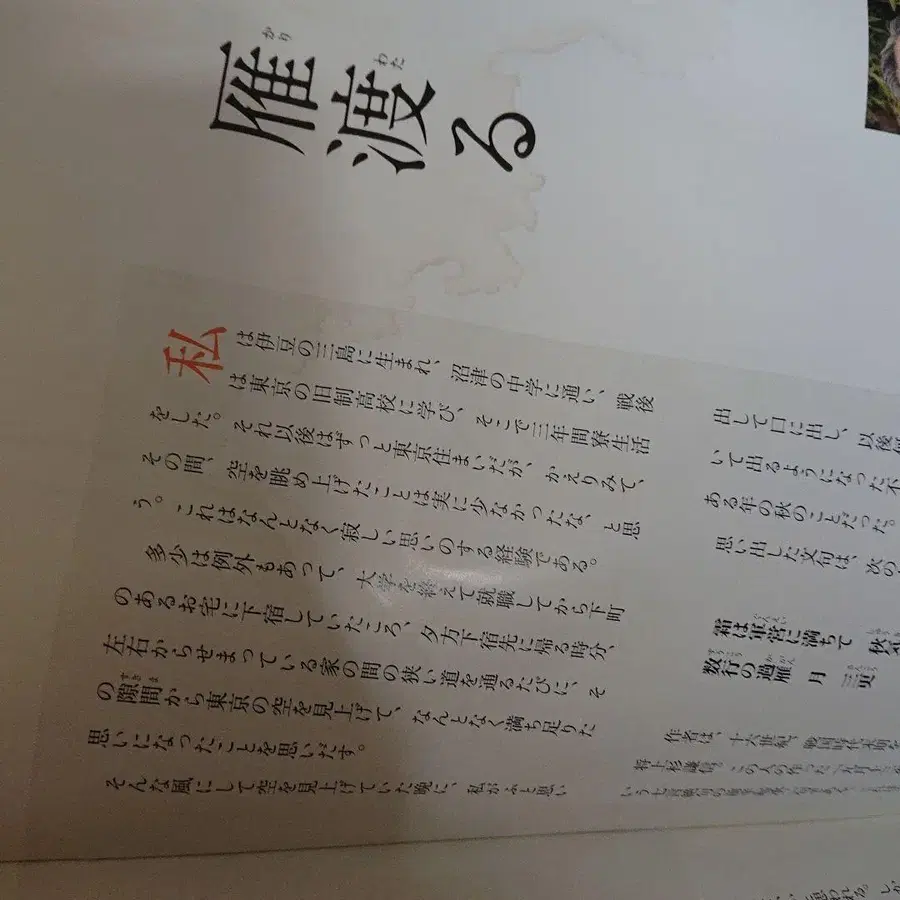 雁渡る
かり
わた
私は伊豆の三島に生まれ、沼津の中学に通い、戦後
は東京の旧制高校に学び、そこで三年間寮生活
をした。それ以後はずっと東京住まいだが、かえりみて、
その間、空を眺め上げたことは実に少なかったな、と思
う。これはなんとなく寂しい思いのする経験である。
多少は例外もあって、大学を終えて就職してから下町
のあるお宅に下宿していたころ、夕方下宿先に帰る時分、
左右からせまっている家の間の狭い道を通るたびに、そ
の隙間から東京の空を見上げて、なんとなく満ち足りた
すきま
思いになったことを思いだす。
そんな風にして空を見上げていた晩に、私がふと思い
出して口に出し、以後
いて出るようになった
ある年の秋のことだった。
思い出した文句は、次の
霜は軍営に満ちて
数行の過雁 月三更
作者は、十六世紀、戦国時代
将上杉謙信。この人の作った